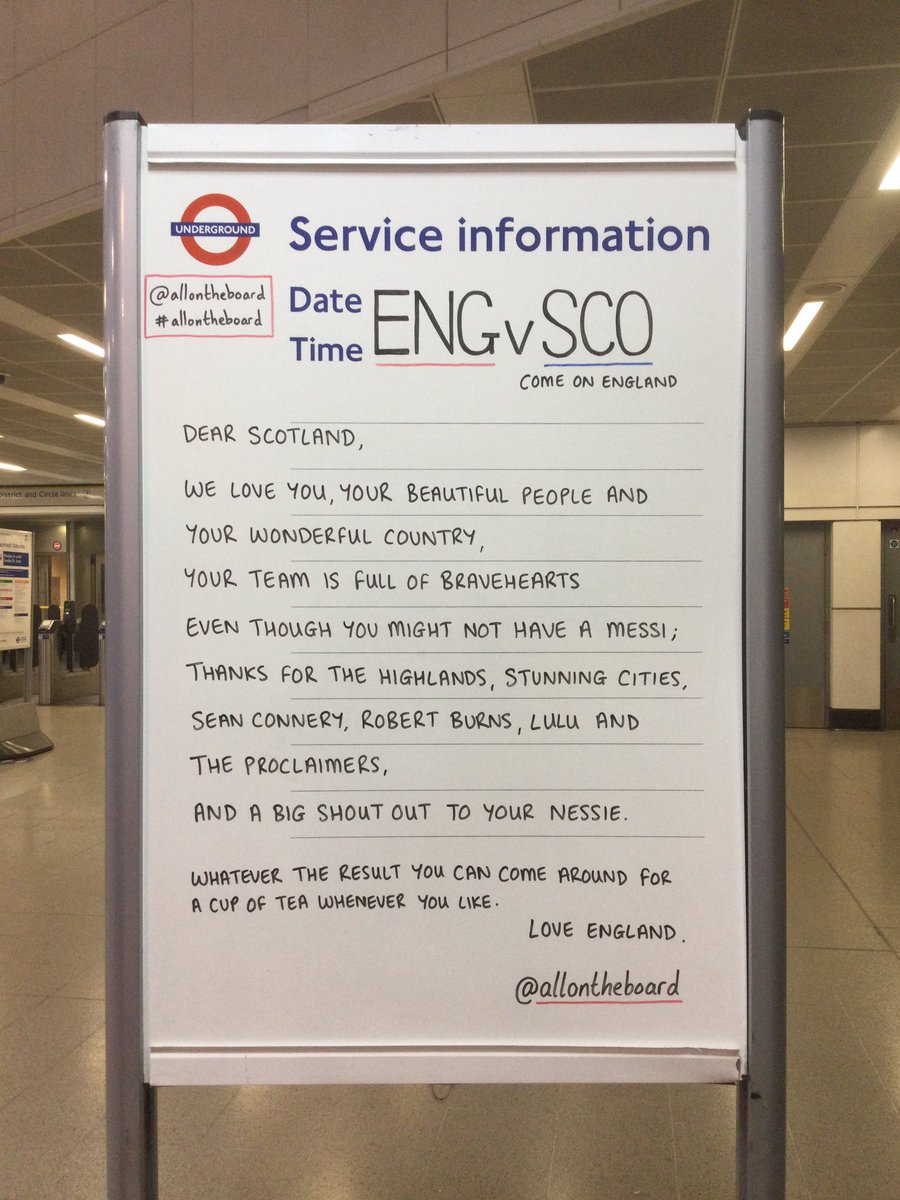 District and Circle lines
UNDERGROUND
Service information
@allontheboard
#allontheboard
Date
Time
ENG v SCO
COME ON ENGLAND
DEAR SCOTLAND,
WE LOVE YOU, YOUR BEAUTIFUL PEOPLE AND
YOUR WONDERFUL COUNTRY,
YOUR TEAM IS FULL OF BRAVEHEARTS
EVEN THOUGH YOU MIGHT NOT HAVE A MESSI;
THANKS FOR THE HIGHLANDS, STUNNING CITIES,
SEAN CONNERY, ROBERT BURNS, LULU AND
THE PROCLAIMERS,
AND A BIG SHOUT OUT TO YOUR NESSIE.
WHATEVER THE RESULT YOU CAN COME AROUND FOR
A CUP OF TEA WHENEVER YOU LIKE.
LOVE ENGLAND.
@allontheboard